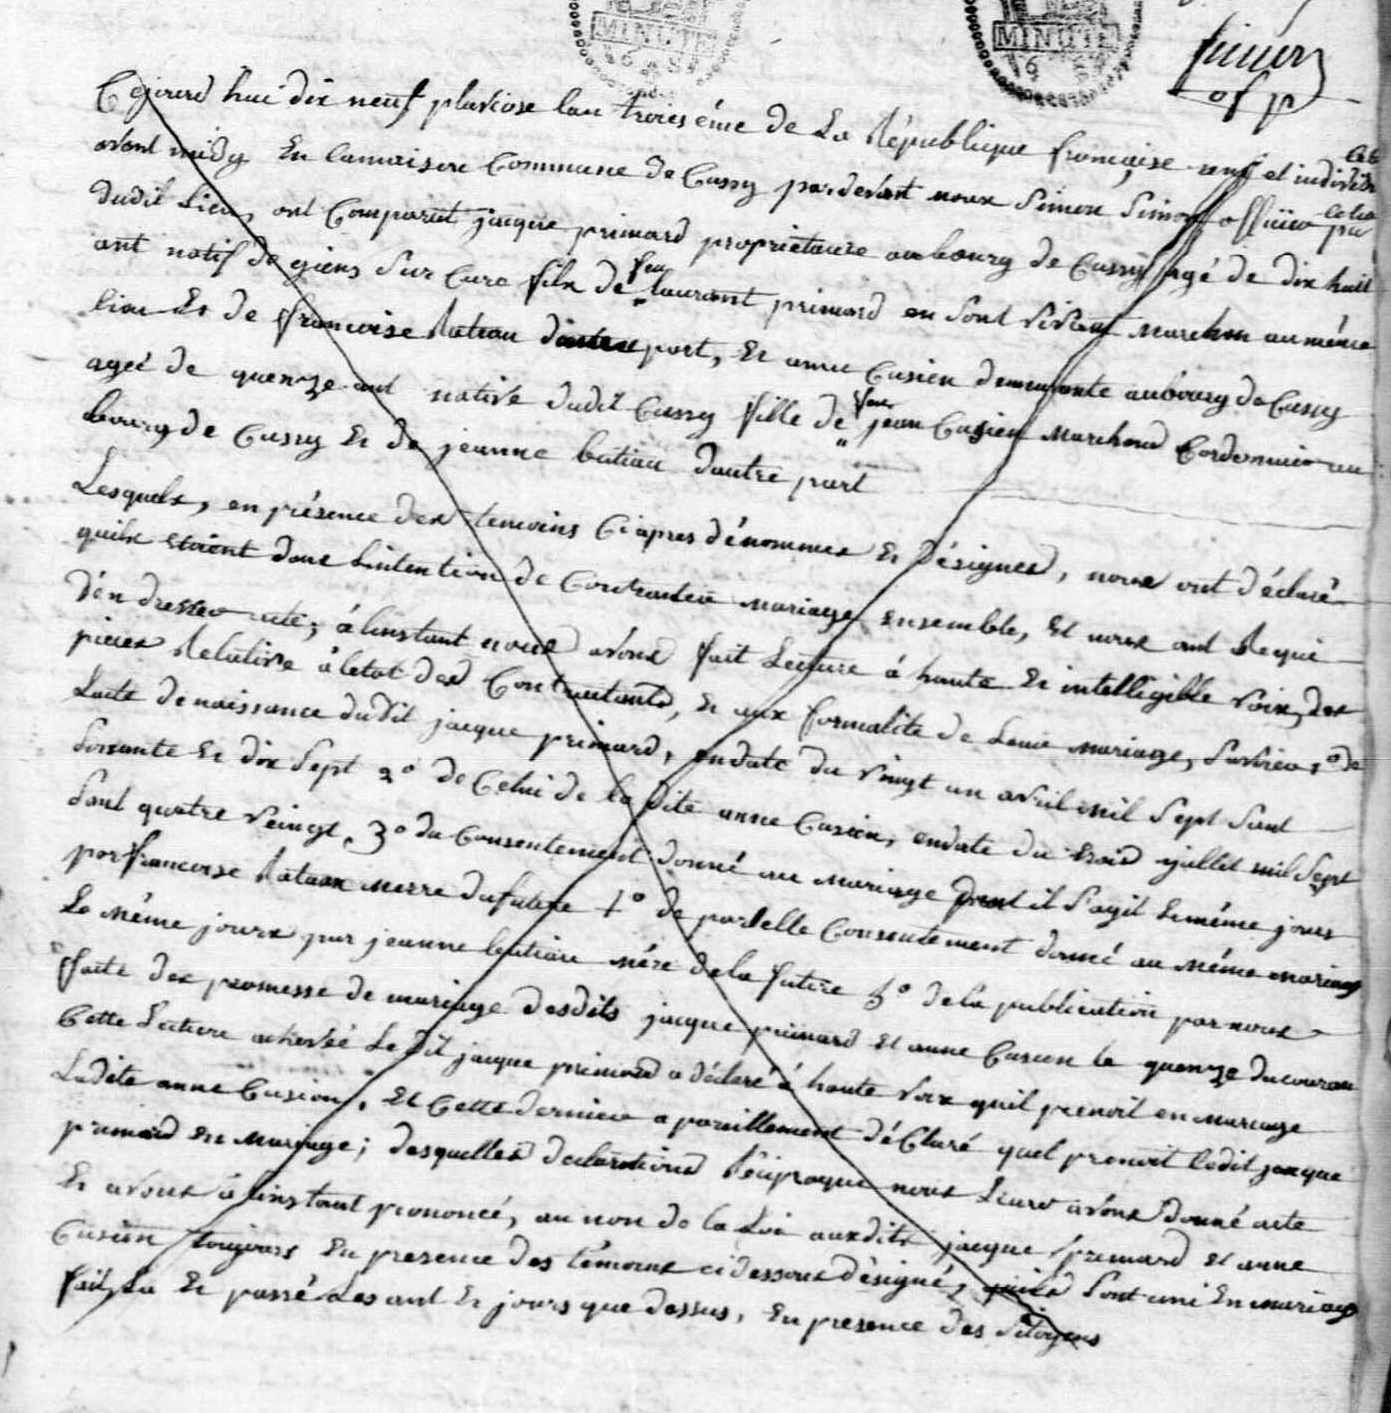 MINUTE
MINUTE
Simon
of p
Cejourd hué dix neuf pluviose lan troiesiéme de La République francaise une et indivisible
avant midy En lamaison Commune de Cussy pardevant nous Simon Simon officier pu
dudit Lieu, ont Comparut jacque primard proprietaire aubourg de Cussy agé de dix huit
ant natif de giens Sur Cure fils de feu laurant primard en sont vivant marchan aumême
lieu Et de francoise Rateau dautre part, Et anne Cusien demeurante aubourg de Cussy
ageé de quenze ant native dudit Cussy fille de feu jean Cusien Marchand Cordonnier au
bourg de Cussy Et de jeanne butiau dautre part
Lesquels, en présence des temoins Ciapres dénommes Et désignes, nous ont déclaré
quils etoient dans Lintention de Contracter mariage ensemble, Et nous ont Requi
den dresser acte; á linstant nous avons fait Lecture á haute Et intelligible voix, des
pieces Relative á letat des Contractants, Et aux formalite de Leur mariage, Savoir 1º de
Lacte de naissance dudit jacque primard, endate du vingt un avril mil Sept Sant
Soixante Et dix Sept 2º de Celui de la dite anne Cusien, endate du trois juillet mil Sept
Sant quatre veingt, 3º du Consentement donné au mariage dont il s'agit Lemême jours
par francoise Rataux merre dufuture 4º de pareille Consentement donné au même mariage
Le même jours par jeanne butiau mére de la future 5º de la publication par nous
faite des promesse de mariage desdits jacque primard et anne Cusien le quenze ducouran
Cette Lecture achevéé Ledit jacque primard a déclaré á haute voix quil prenoit en mariage
Ladite anne Cusien, Et Cette derniere a pareillement déClaré quel prenoit ledit jacque
primard en mariage; desquelles declarations Réciproque nous Leurs avons donné acte
Et avons á linstant prononcé, au non de la Loi auxdits jacque primard et anne
Cusien toujours En presence des témoins cidessous désigné, quils Sont uni En mariage
fait, Lu Et passé Les ant Et jours que dessus, En presence des Sitoyens